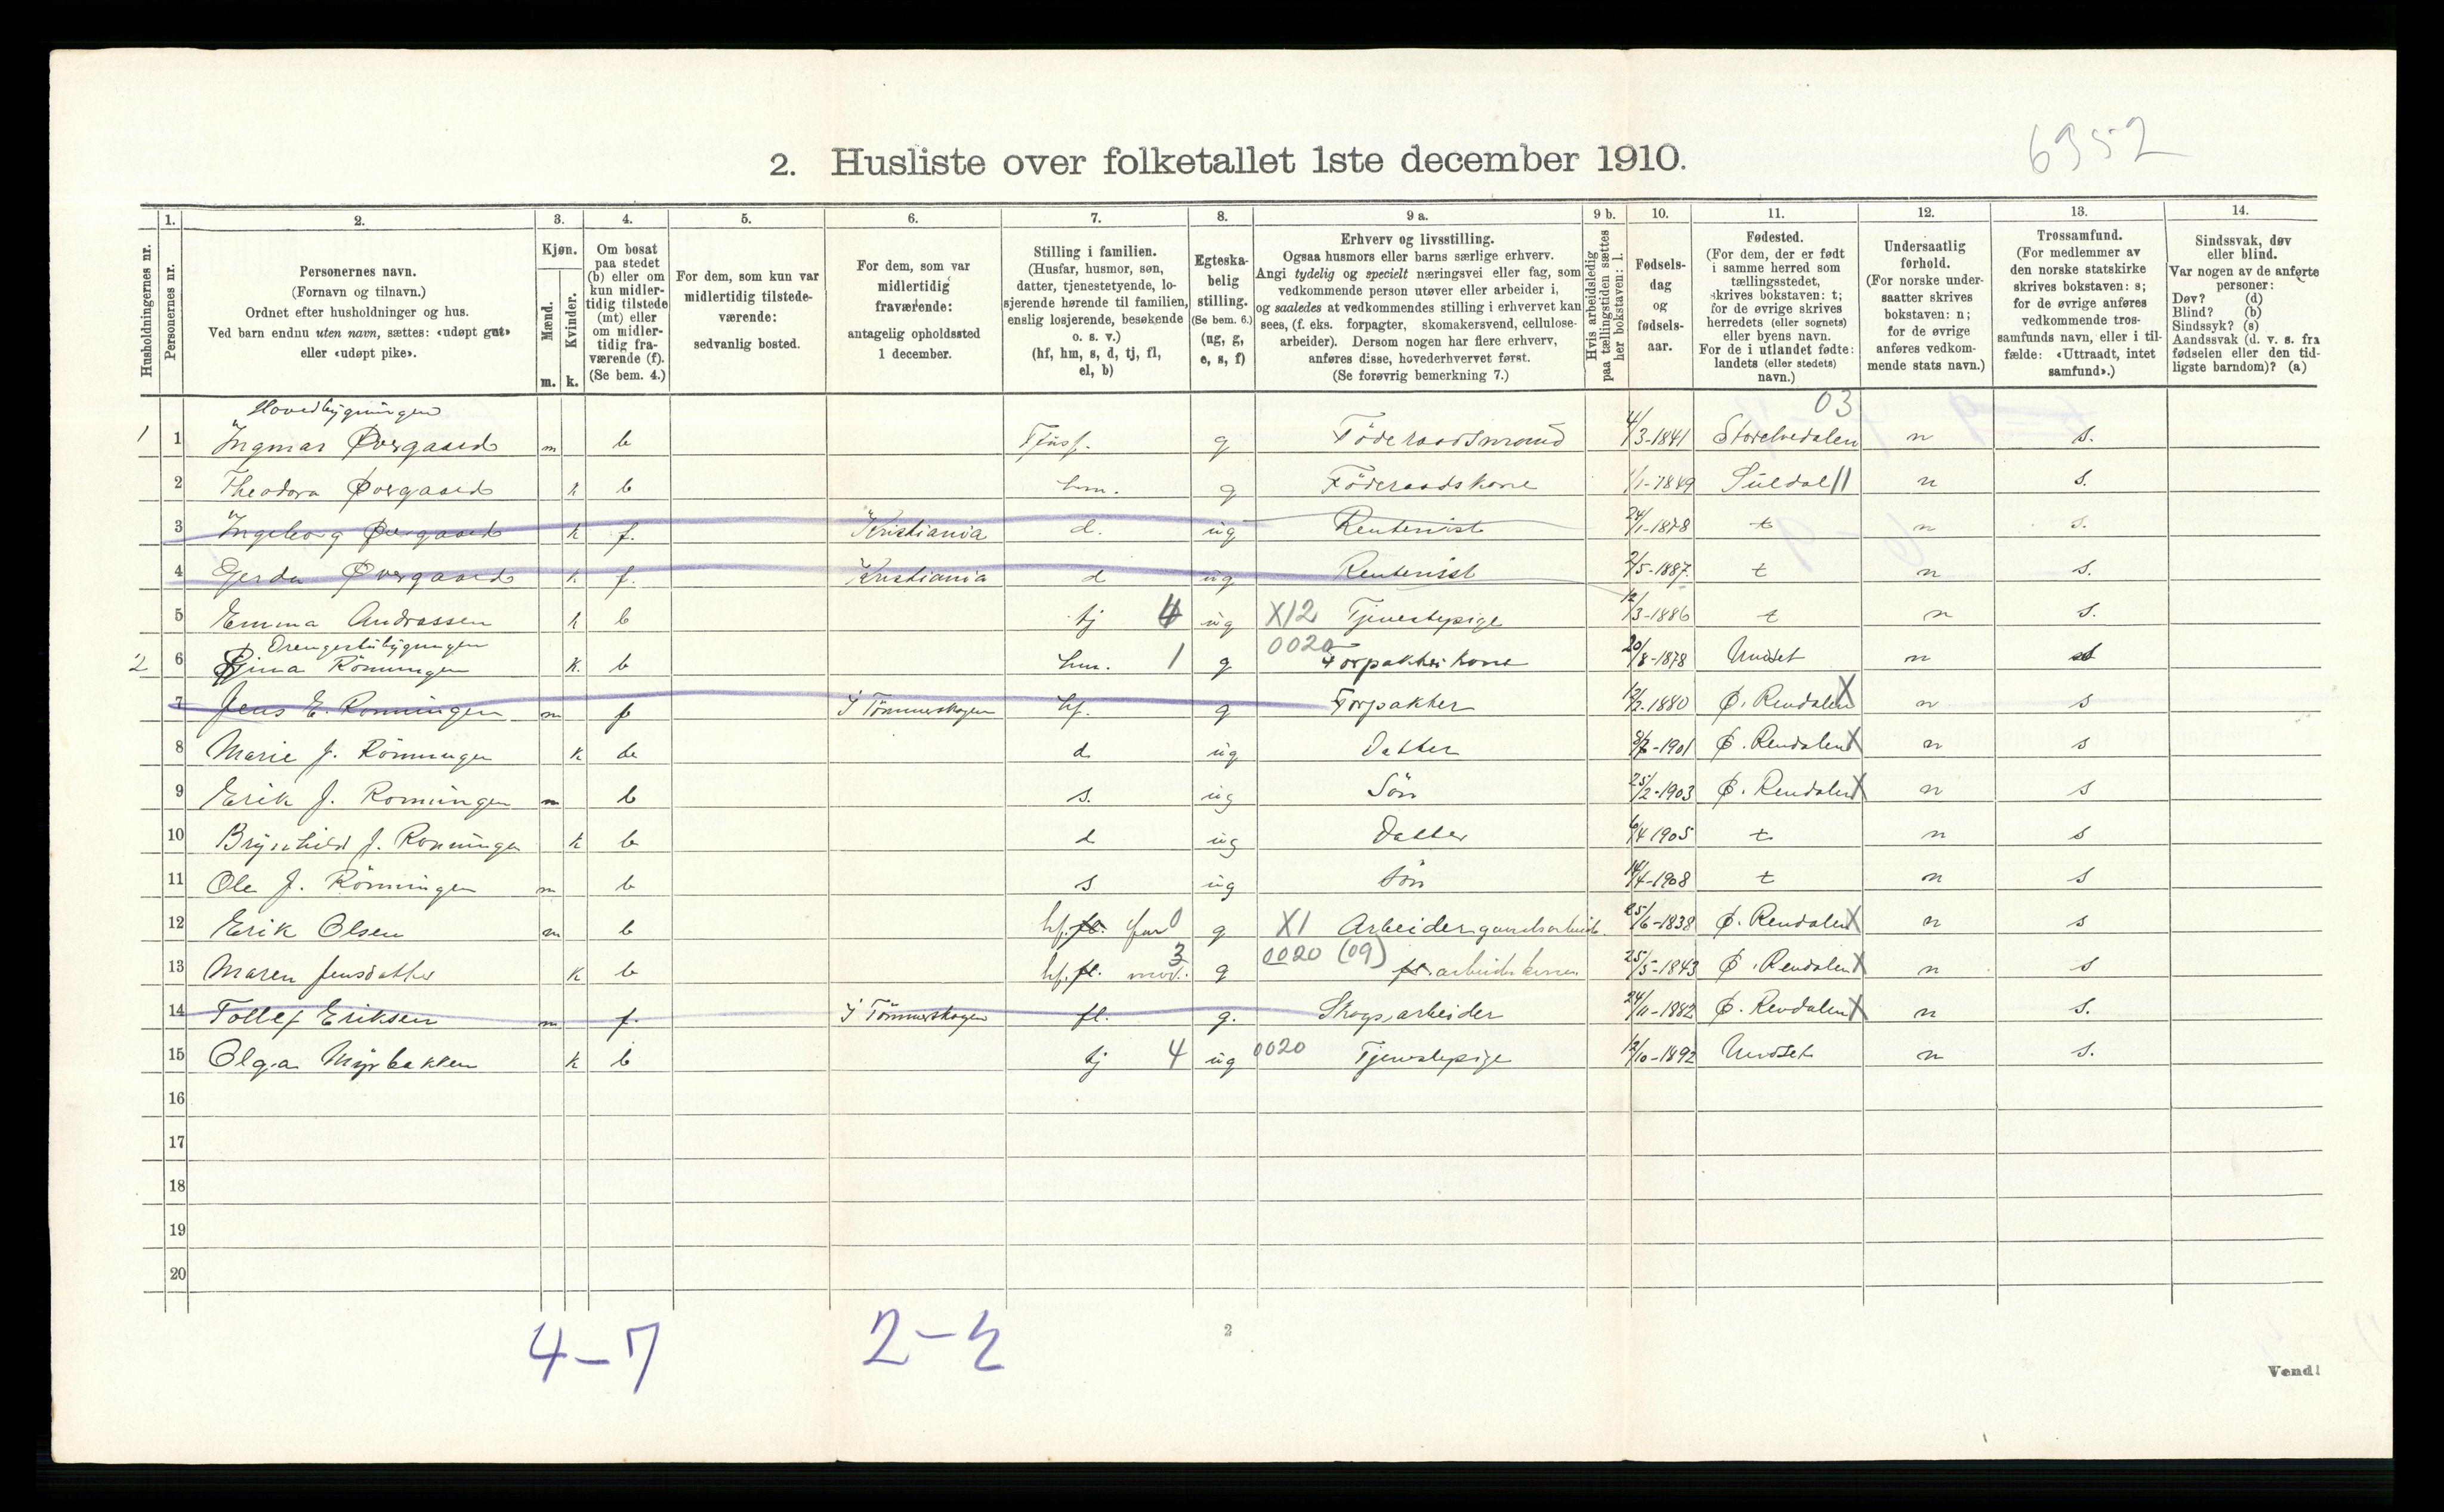 6952
2. Husliste over folketallet 1ste december 1910.
Husholdningernes nr.
1. Personernes nr.
2. Personernes navn. (Fornavn og tilnavn.) Ordnet efter husholdninger og hus. Ved barn endnu uten navn, sættes: «udøpt gut» eller «udøpt pike».
3. Kjøn. Mænd. m. Kvinder. k.
4. Om bosat paa stedet (b) eller om kun midlertidig tilstede (mt) eller om midlertidig fraværende (f). (Se bem. 4.)
5. For dem, som kun var midlertidig tilstedeværende: sedvanlig bosted.
6. For dem, som var midlertidig fraværende: antagelig opholdssted 1 december.
7. Stilling i familien. (Husfar, husmor, søn, datter, tjenestetyende, losjerende hørende til familien, enslig losjerende, besøkende o. s. v.) (hf, hm, s, d, tj, fl, el, b)
8. Egteskabelig stilling. (Se bem. 6.) (ug, g, e, s, f)
9 a. Erhverv og livsstilling. Ogsaa husmors eller barns særlige erhverv. Angi tydelig og specielt næringsvei eller fag, som vedkommende person utøver eller arbeider i, og saaledes at vedkommendes stilling i erhvervet kan sees, (f. eks. forpagter, skomakersvend, cellulosearbeider). Dersom nogen har flere erhverv, anføres disse, hovederhvervet først. (Se forøvrig bemerkning 7.)
9 b. Hvis arbeidsledig paa tællingstiden sættes her bokstaven: l.
10. Fødselsdag og fødselsaar.
11. Fødested. (For dem, der er født i samme herred som tællingsstedet, skrives bokstaven: t; for de øvrige skrives herredets (eller sognets) eller byens navn. For de i utlandet fødte: landets (eller stedets) navn.)
12. Undersaatlig forhold. (For norske undersaatter skrives bokstaven: n; for de øvrige anføres vedkommende stats navn.)
13. Trossamfund. (For medlemmer av den norske statskirke skrives bokstaven: s; for de øvrige anføres vedkommende trossamfunds navn, eller i tilfælde: «Uttraadt, intet samfund».)
14. Sindssvak, døv eller blind. Var nogen av de anførte personer: Døv? (d) Blind? (b) Sindssyk? (s) Aandssvak (d. v. s. fra fødselen eller den tidligste barndom)? (a)
Hovedbygningen 03
1 1 Ingmar Øvergaard m b g Föderaadsmand 4/3-1841 Storelvedalen n s.
2 Theodora Øvergaard k b hm. g Föderaadskone 1/1-1849 n s.
3 Ingeborg Øvergaard k f. Kristiania d. ug Rentenist 24/1-1878 t n s.
4 Gerda Øvergaard k f. Kristiania d ug Rentenist 2/5-1887. t n s.
5 Emma Andrassen k b tj 4 ug X12 Tjenestepige 12/3-1886 t n s.
Drengestubygningen
2 6 Gina Rönningen k. b hm. 1 g 0020 Forpakterkone 20/8-1878 n
7 Jens E. Rönningen m f I Tömmerskogen hf. g Forpakter 12/2-1880 Ø. Rendalen X n s
8 Marie J. Rönningen k b d ug Datter Ø. Rendalen X n s
9 Erik J. Rönningen m b s. ug Sön 25/2-1903 Ø. Rendalen X n s
10 Brynhild J. Rönningen k b d ug Datter 6/4 1905 t n s
11 Ole J. Rönningen m b s ug Sön 14/4-1908 t n s
12 Erik Olsen m b hf. fl. far 0 g X1 Arbeider gaardsarbeide. 25/6-1838 Ø. Rendalen X n s
13 Maren Jensdatter k b fl. mor. 3 g 0020 (09) arbeiderkone 25/5-1843 Ø. Rendalen X n s
14 Tollef Eriksen m f. I Tömmerskogen fl. g. Skogsarbeider 24/11-1882 Ø. Rendalen X n s.
15 Olga Myrbakken k b tj 4 ug 0020 Tjenestepige 12/10-1892 n s.
16
17
18
19
20
4-7 2-2
2
Vend!